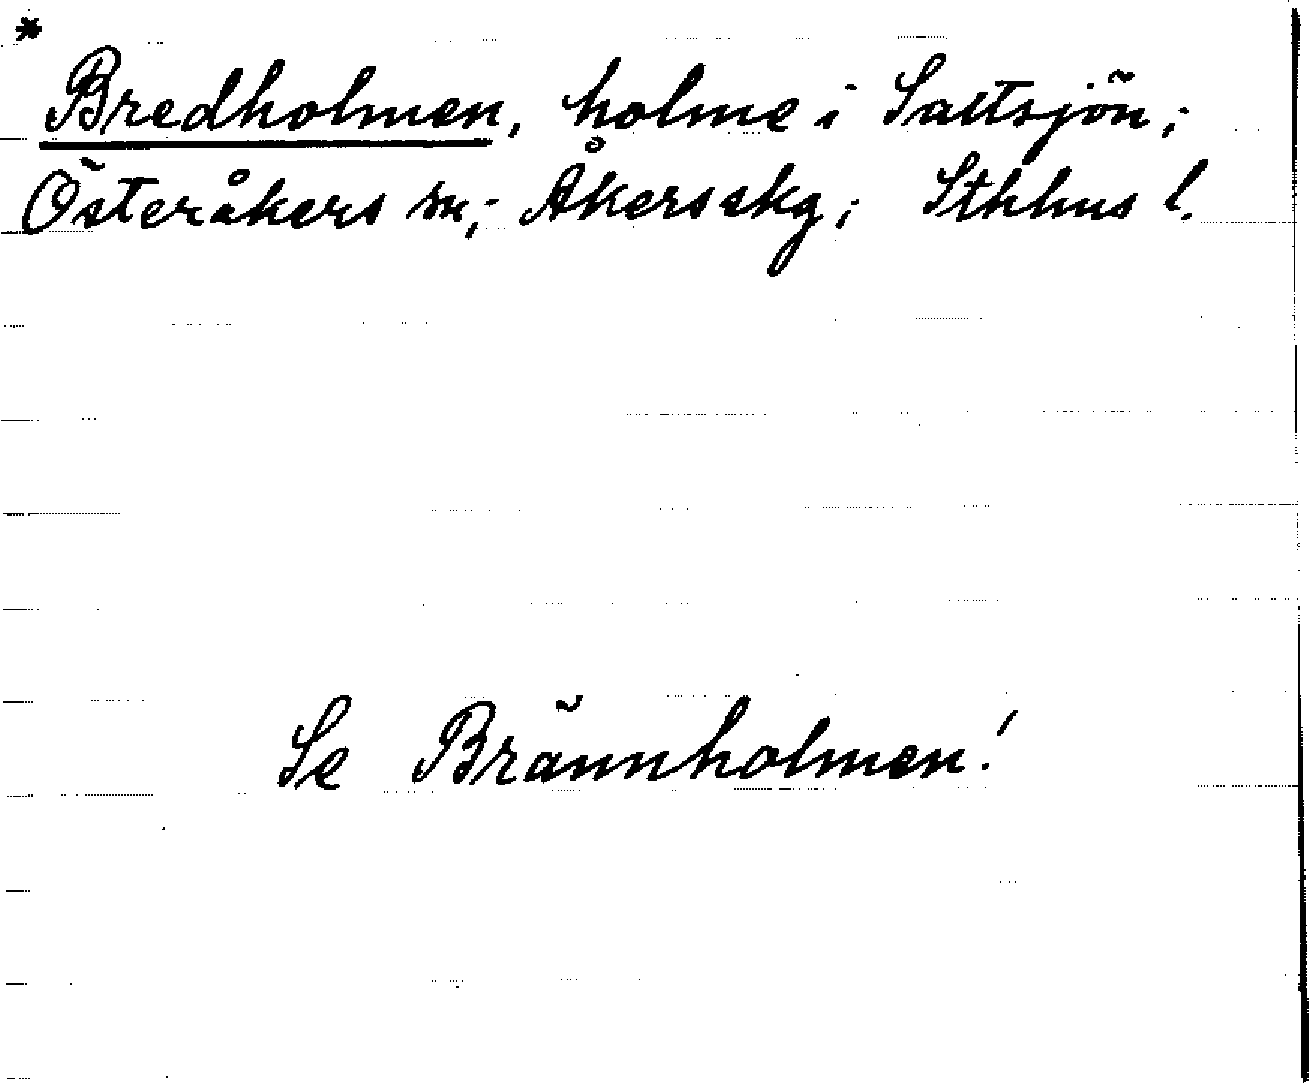 *
Bredholmen, holme i Saltsjön;
Österåkers sn; Åkers skg; Sthlms l.
Se Brännholmen!